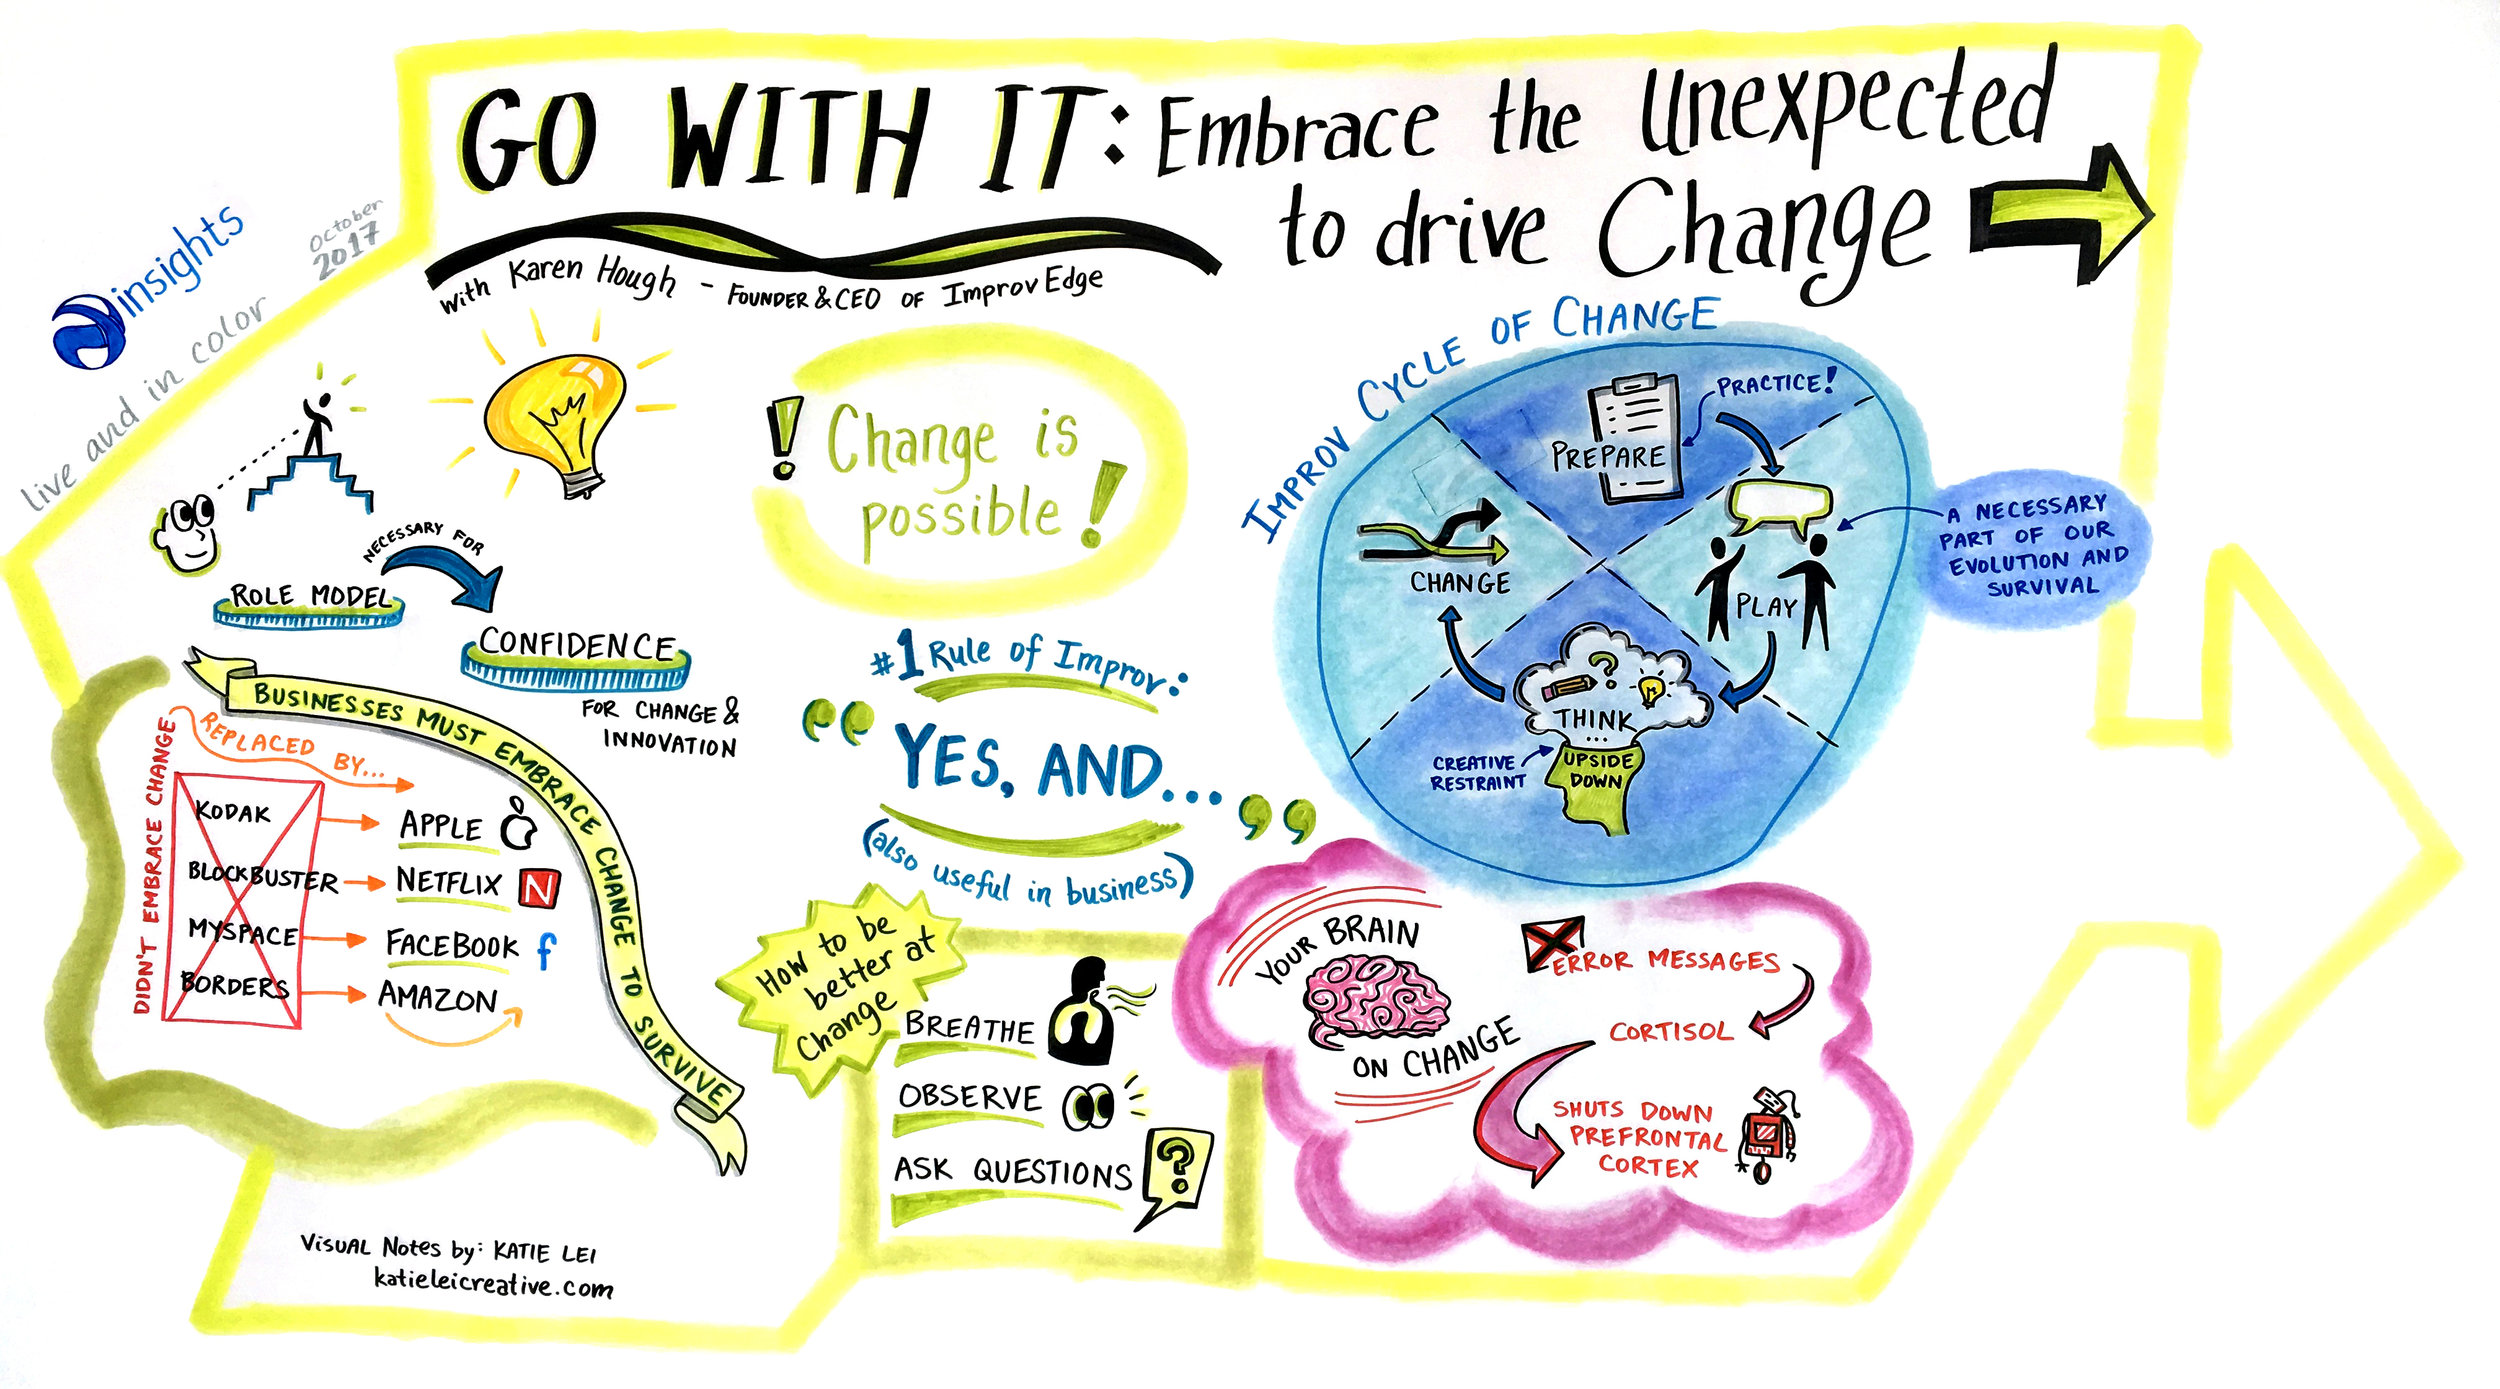 GO WITH IT: Embrace the Unexpected
to drive Change
with Karen Hough - FOUNDER & CEO OF ImprovEdge
insights
live and in color
October
2017
NECESSARY FOR
ROLE MODEL
CONFIDENCE
FOR CHANGE &
INNOVATION
! Change is
possible!
#1 Rule of Improv:
"YES, AND..."
(also useful in business)
BUSINESSES MUST EMBRACE CHANGE TO SURVIVE
DIDN'T EMBRACE CHANGE
REPLACED BY...
KODAK
APPLE
BLOCKBUSTER
NETFLIX N
MYSPACE
FACEBOOK f
BORDERS
AMAZON
How to be
better at
Change
BREATHE
OBSERVE
ASK QUESTIONS
?
IMPROV CYCLE OF CHANGE
PRACTICE!
PREPARE
PLAY
A NECESSARY
PART OF OUR
EVOLUTION AND
SURVIVAL
?
THINK
...
UPSIDE
DOWN
CREATIVE
RESTRAINT
CHANGE
YOUR BRAIN
ON CHANGE
ERROR MESSAGES
CORTISOL
SHUTS DOWN
PREFRONTAL
CORTEX
Visual Notes by: KATIE LEI
katieleicreative.com